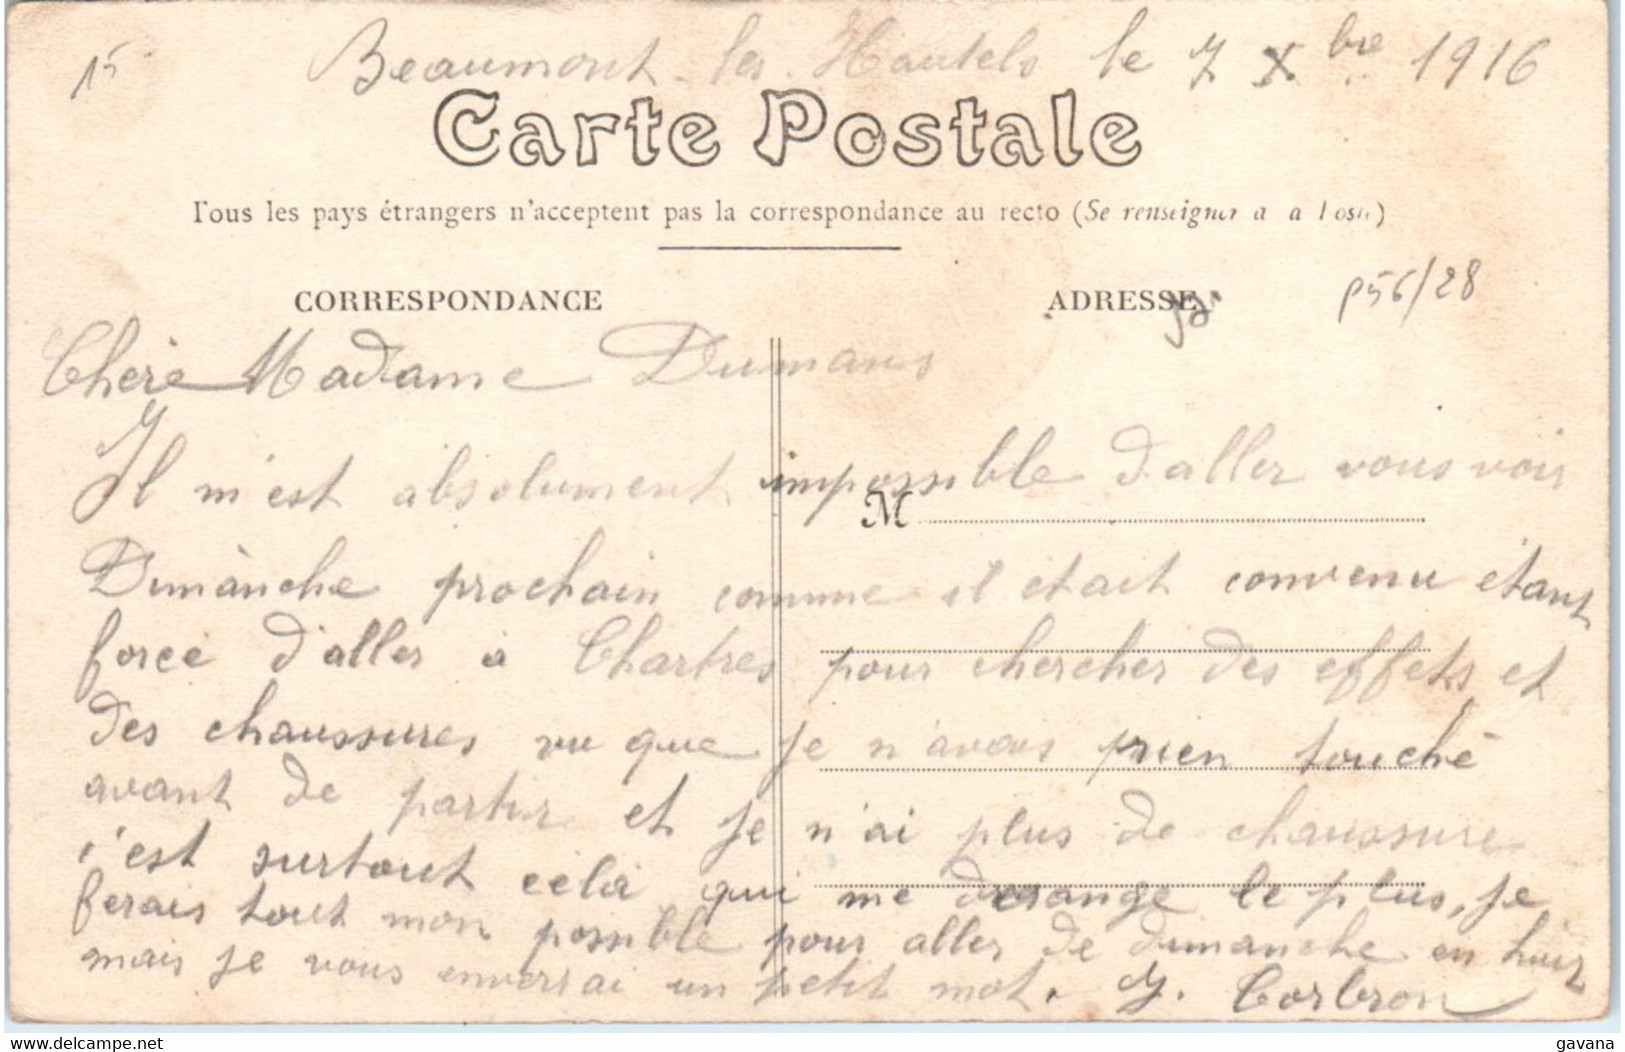 15
Beaumont les Hautels le 7 Xbre 1916
Carte Postale
Tous les pays étrangers n'acceptent pas la correspondance au recto (Se renseigner a a Poste)
CORRESPONDANCE ADRESSE P56/28
Chère Madame Dumans
Il m'est absolument impossible d'aller vous voir
M
Dimanche prochain comme il était convenu étant
forcé d'aller à Chartres pour chercher des effets et
des chaussures vu que je n'avais rien touché
avant de partir et je n'ai plus de chaussure
c'est surtout cela qui me derange le plus, je
ferais tout mon possible pour aller de dimanche en huit
mais je vous enverrai un petit mot. Y. Corbron
www.delcampe.net gavana